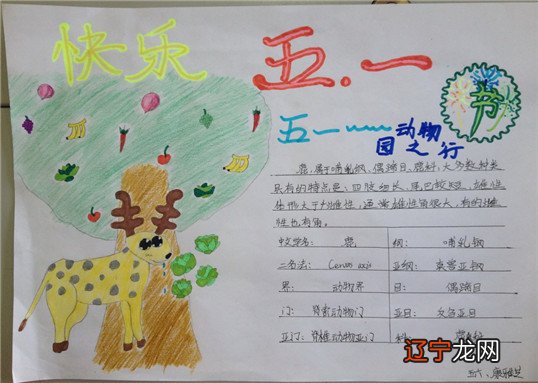 快乐 五.一
节
五一~~动物
园之行
鹿,属于哺乳钢、偶蹄目、鹿科,大多数种类
具有的特点是,四肢细长,尾巴较短,雄性
体形大于雌性,通常雄性有角
性也有角。
中文学名: 鹿 纲: 哺乳钢
二名法: Cervus axis 亚纲: 真兽亚钢
界: 动物界 目: 偶蹄目
门: 脊索动物门 亚目: 反刍亚目
亚门: 脊椎动物亚门 科:
辽宁龙网